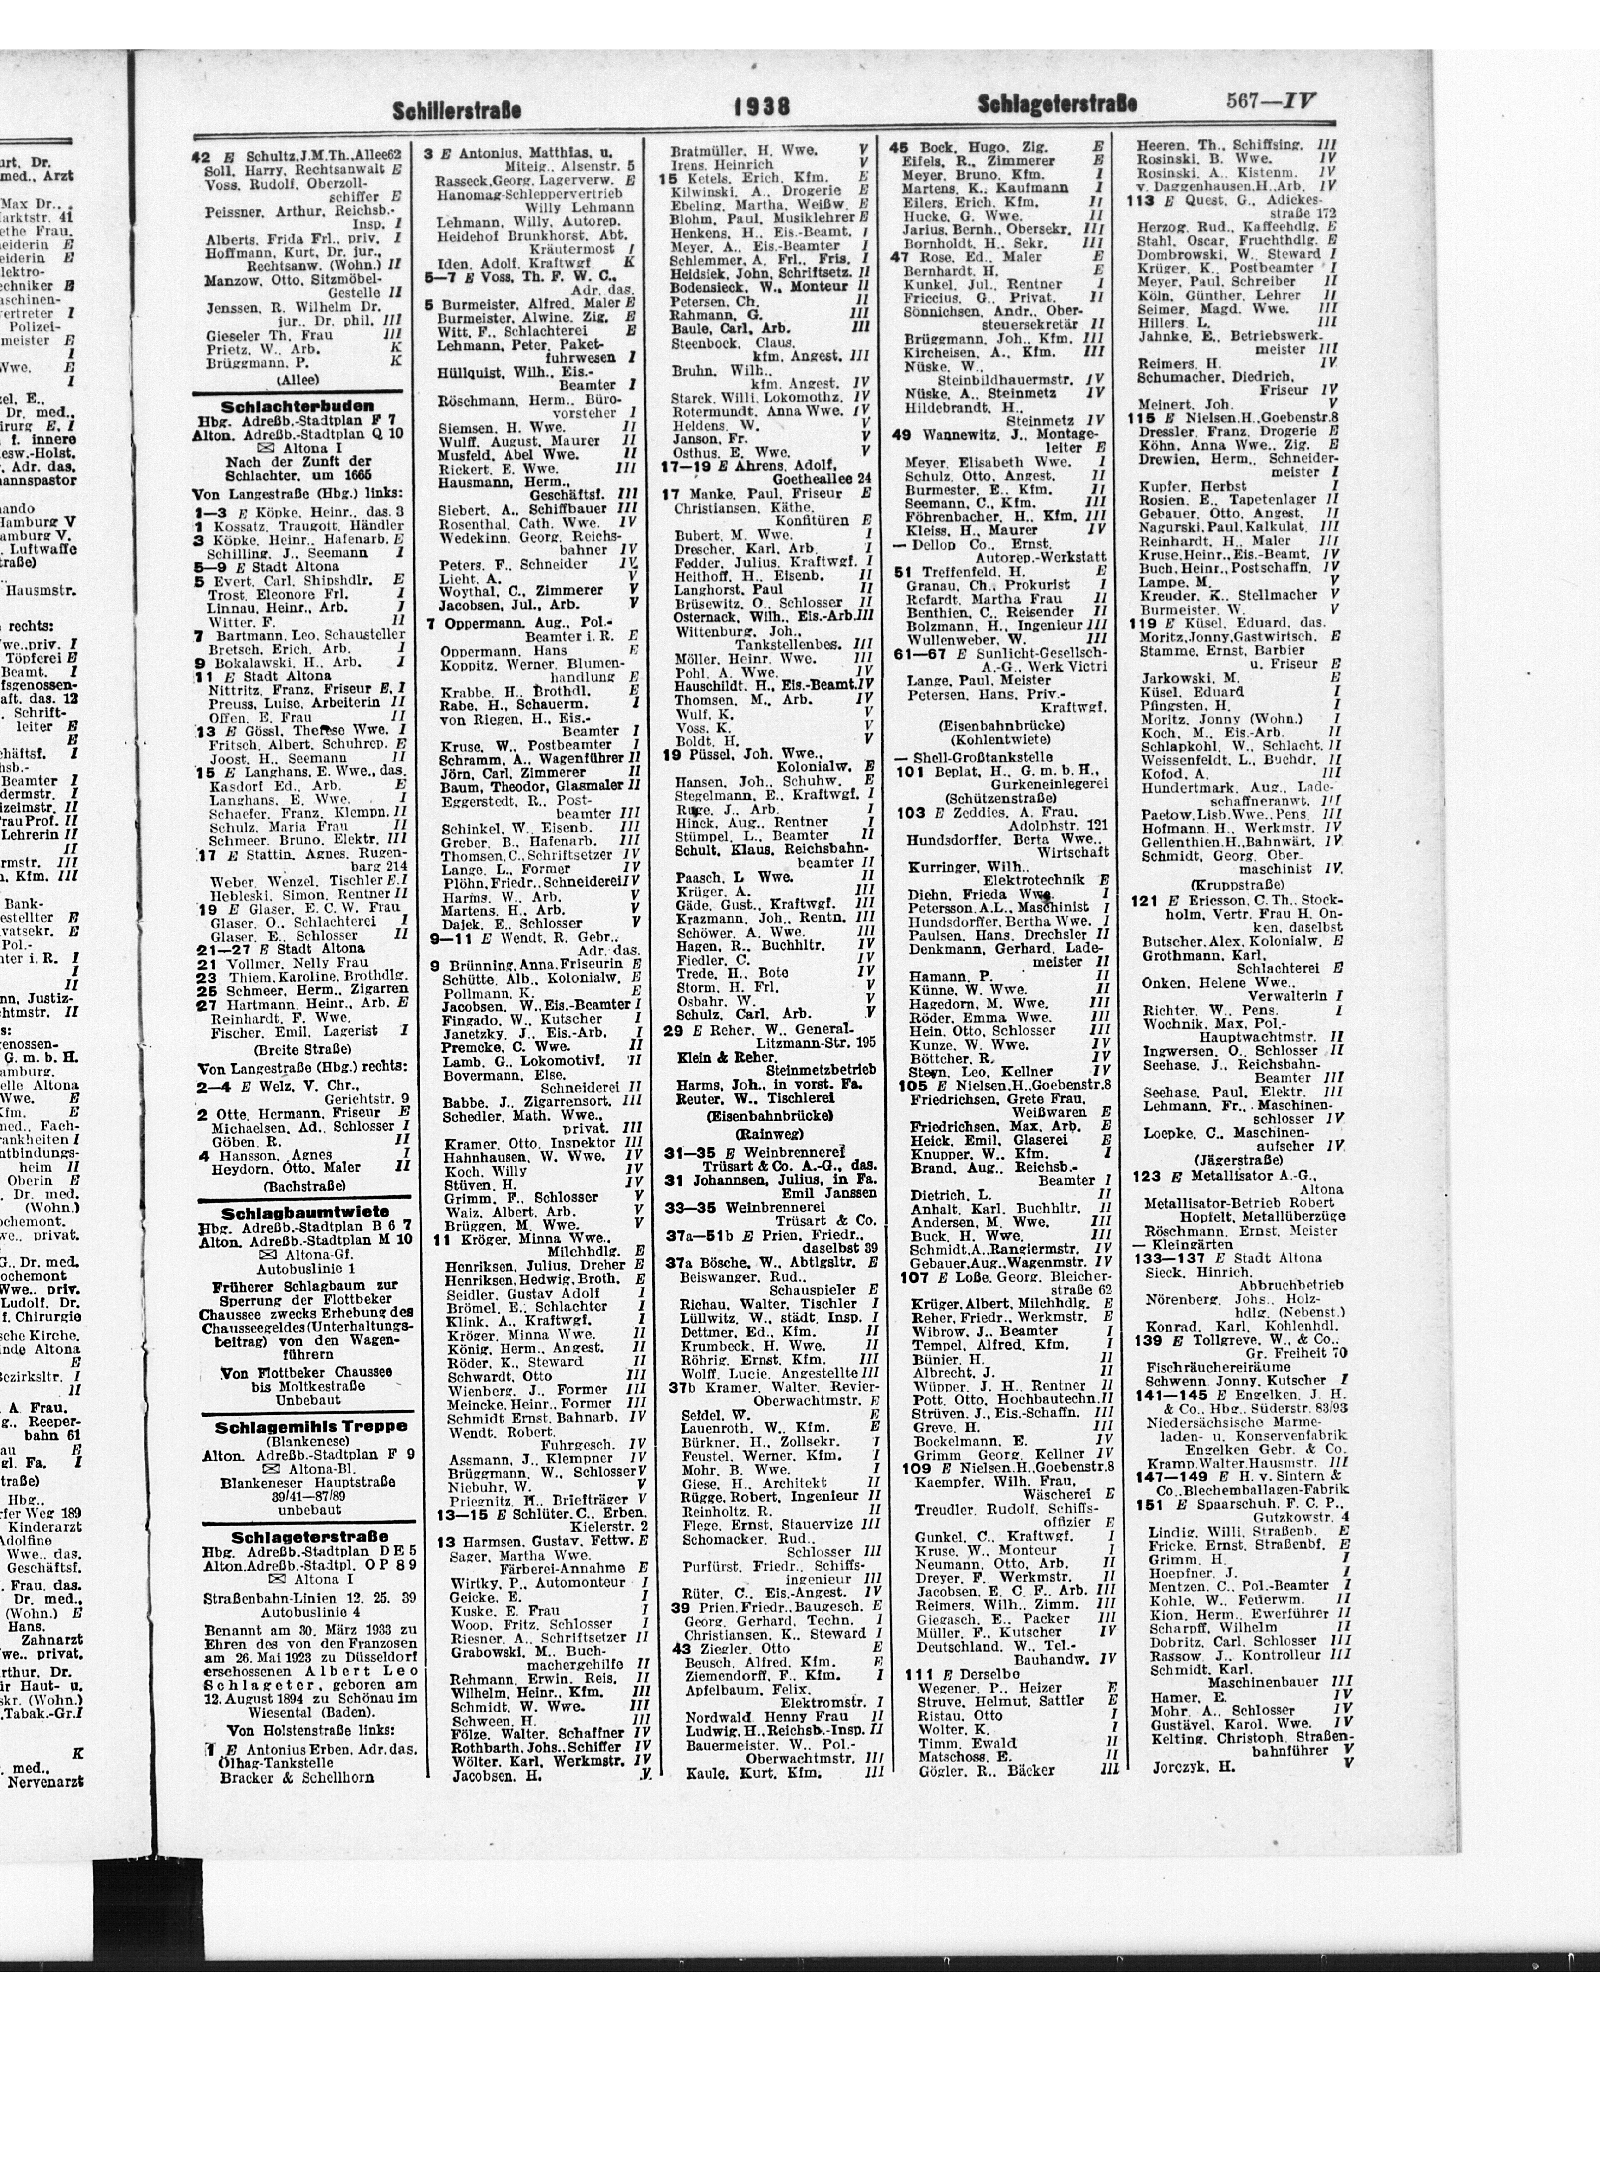 Schillerstraße 1938 Schlageterstraße 567—IV
42 E Schultz,J.M.Th.,Allee62
Soll, Harry, Rechtsanwalt E
Voss, Rudolf, Oberzoll-
schiffer E
Peissner, Arthur, Reichsb.-
Insp. I
Alberts, Frida Frl., priv. I
Hoffmann, Kurt, Dr. jur.,
Rechtsanw. (Wohn.) II
Manzow, Otto, Sitzmöbel-
Gestelle II
Jenssen, R. Wilhelm Dr.
jur., Dr. phil. III
Gieseler Th. Frau III
Prietz, W., Arb. K
Brüggmann, P. K
(Allee)
Schlachterbuden
Hbg. Adreßb.-Stadtplan F 7
Alton. Adreßb.-Stadtplan Q 10
Altona I
Nach der Zunft der
Schlachter, um 1665
Von Langestraße (Hbg.) links:
1—3 E Köpke, Heinr., das. 3
1 Kossatz, Traugott, Händler
3 Köpke, Heinr., Hafenarb. E
Schilling, J., Seemann I
5—9 E Stadt Altona
5 Evert, Carl, Shipshdlr. E
Trost, Eleonore Frl. I
Linnau, Heinr., Arb. I
Witter, F. II
7 Bartmann, Leo, Schausteller
Bretsch, Erich, Arb. I
9 Bokalawski, H., Arb. I
11 E Stadt Altona
Nittritz, Franz, Friseur E, I
Preuss, Luise, Arbeiterin II
Offen, E. Frau II
13 E Gössl, Therese Wwe. I
Fritsch, Albert, Schuhrep. E
Joost, H., Seemann II
15 E Langhans, E. Wwe., das.
Kasdorf Ed., Arb. E
Langhans, E. Wwe. I
Schaefer, Franz, Klempn. II
Schulz, Maria Frau II
Schmeer, Bruno, Elektr. III
17 E Stattin, Agnes, Rugen-
barg 214
Weber, Wenzel, Tischler E,I
Hebleski, Simon, Rentner II
19 E Glaser, E. C. W. Frau
Glaser, O., Schlachterei I
Glaser, E., Schlosser II
21—27 E Stadt Altona
21 Vollmer, Nelly Frau
23 Thiem, Karoline, Brothdlg.
25 Schmeer, Herm., Zigarren
27 Hartmann, Heinr., Arb. E
Reinhardt, F. Wwe.
Fischer, Emil, Lagerist I
(Breite Straße)
Von Langestraße (Hbg.) rechts:
2—4 E Welz, V. Chr.,
Gerichtstr. 9
2 Otte, Hermann, Friseur E
Michaelsen, Ad., Schlosser I
Göben, R. II
4 Hansson, Agnes I
Heydorn, Otto, Maler II
(Bachstraße)
Schlagbaumtwiete
Hbg. Adreßb.-Stadtplan B 6 7
Alton. Adreßb.-Stadtplan M 10
Altona-Gf.
Autobuslinie 1
Früherer Schlagbaum zur
Sperrung der Flottbeker
Chaussee zwecks Erhebung des
Chausseegeldes (Unterhaltungs-
beitrag) von den Wagen-
führern
Von Flottbeker Chaussee
bis Moltkestraße
Unbebaut
Schlagemihls Treppe
(Blankenese)
Alton. Adreßb.-Stadtplan F 9
Altona-Bl.
Blankeneser Hauptstraße
39/41—87/89
unbebaut
Schlageterstraße
Hbg. Adreßb.-Stadtplan D E 5
Alton.Adreßb.-Stadtpl. O P 8 9
Altona I
Straßenbahn-Linien 12, 25, 39
Autobuslinie 4
Benannt am 30. März 1933 zu
Ehren des von den Franzosen
am 26. Mai 1923 zu Düsseldorf
erschossenen Albert Leo
Schlageter, geboren am
12. August 1894 zu Schönau im
Wiesental (Baden).
Von Holstenstraße links:
1 E Antonius Erben, Adr. das.
Olhag-Tankstelle
Bracker & Schellhorn
3 E Antonius, Matthias, u.
Miteig., Alsenstr. 5
Rasseck, Georg, Lagerverw. E
Hanomag-Schleppervertrieb
Willy Lehmann
Lehmann, Willy, Autorep.
Heidehof Brunkhorst, Abt.
Kräutermost I
Iden, Adolf, Kraftwgf K
5—7 E Voss, Th. F. W. C.,
Adr. das.
5 Burmeister, Alfred, Maler E
Burmeister, Alwine, Zig. E
Witt, F., Schlachterei E
Lehmann, Peter, Paket-
fuhrwesen I
Hüllquist, Wilh., Eis.-
Beamter I
Röschmann, Herm., Büro-
vorsteher I
Siemsen, H. Wwe. II
Wulff, August, Maurer II
Musfeld, Abel Wwe. II
Rickert, E. Wwe. III
Hausmann, Herm.,
Geschäftsf. III
Siebert, A., Schiffbauer III
Rosenthal, Cath. Wwe. IV
Wedekinn, Georg, Reichs-
bahner IV
Peters, F., Schneider IV
Licht, A. V
Woythal, C., Zimmerer V
Jacobsen, Jul., Arb. V
7 Oppermann, Aug., Pol.-
Beamter i. R. E
Oppermann, Hans E
Koppitz, Werner, Blumen-
handlung E
Krabbe, H., Brothdl. E
Rabe, H., Schauerm. I
von Riegen, H., Eis.-
Beamter I
Kruse, W., Postbeamter I
Schramm, A., Wagenführer II
Jörn, Carl, Zimmerer II
Baum, Theodor, Glasmaler II
Eggerstedt, R., Post-
beamter III
Schinkel, W., Eisenb. III
Greber, B., Hafenarb. III
Thomsen, C., Schriftsetzer IV
Lange, L., Former IV
Plöhn, Friedr., Schneiderei IV
Harms, W., Arb. V
Martens, H., Arb. V
Dajek, E., Schlosser V
9—11 E Wendt, R. Gebr.,
Adr. das.
9 Brünning, Anna, Friseurin E
Schütte, Alb., Kolonialw. E
Pollmann, K. E
Jacobsen, W., Eis.-Beamter I
Fingado, W., Kutscher I
Janetzky, J., Eis-Arb. I
Premcke, C. Wwe. II
Lamb, G., Lokomotivf. II
Bovermann, Else,
Schneiderei II
Babbe, J., Zigarrensort. III
Schedler, Math. Wwe.,
privat. III
Kramer, Otto, Inspektor III
Hahnhausen, W. Wwe. IV
Koch, Willy IV
Stüven, H. IV
Grimm, F., Schlosser V
Waiz, Albert, Arb. V
Brüggen, M. Wwe. V
11 Kröger, Minna Wwe.,
Milchhdlg. E
Henriksen, Julius, Dreher E
Henriksen, Hedwig, Broth. E
Seidler, Gustav Adolf I
Brömel, E., Schlachter I
Klink, A., Kraftwgf. I
Kröger, Minna Wwe. II
König, Herm., Angest. II
Röder, K., Steward II
Schwardt, Otto III
Wienberg, J., Former III
Meincke, Heinr., Former III
Schmidt Ernst, Bahnarb. IV
Wendt, Robert,
Fuhrgesch. IV
Assmann, J., Klempner IV
Brüggmann, W., Schlosser V
Niebuhr, W. V
Priegnitz, H., Briefträger V
13—15 E Schlüter, C., Erben,
Kielerstr. 2
13 Harmsen, Gustav, Fettw. E
Sager, Martha Wwe.
Färberei-Annahme E
Wirtky, P., Automonteur I
Geicke, E. I
Kuske, E. Frau I
Woop, Fritz, Schlosser I
Riesner, A., Schriftsetzer II
Grabowski, M., Buch-
machergehilfe II
Rehmann, Erwin, Reis. II
Wilhelm, Heinr., Kfm. III
Schmidt, W. Wwe. III
Schween, H. III
Fölze, Walter, Schaffner IV
Rothbarth, Johs., Schiffer IV
Wölter, Karl, Werkmstr. IV
Jacobsen, H. V
Bratmüller, H. Wwe. V
Irens, Heinrich V
15 Ketels, Erich, Kfm. E
Kilwinski, A., Drogerie E
Ebeling, Martha, Weißw. E
Blohm, Paul, Musiklehrer E
Henkens, H., Eis.-Beamt. I
Meyer, A., Eis-Beamter I
Schlemmer, A. Frl., Fris. I
Heidsiek, John, Schriftsetz. II
Bodensieck, W., Monteur II
Petersen, Ch. II
Rahmann, G. III
Baule, Carl, Arb. III
Steenbock, Claus,
kfm. Angest. III
Bruhn, Wilh.,
kfm. Angest. IV
Starck, Willi, Lokomothz. IV
Rotermundt, Anna Wwe. IV
Heldens, W. V
Janson, Fr. V
Osthus, E. Wwe. V
17—19 E Ahrens, Adolf,
Goetheallee 24
17 Manke, Paul, Friseur E
Christiansen, Käthe,
Konfitüren E
Bubert, M. Wwe. I
Drescher, Karl, Arb. I
Fedder, Julius, Kraftwgf. I
Heithoff, H., Eisenb. II
Langhorst, Paul II
Brüsewitz, O., Schlosser II
Osternack, Wilh., Eis.-Arb.III
Wittenburg, Joh.,
Tankstellenbes. III
Möller, Heinr. Wwe. III
Pohl, A. Wwe. IV
Hauschildt, H., Eis.-Beamt.IV
Thomsen, M., Arb. IV
Wulf, K. V
Voss, K. V
Boldt, H. V
19 Püssel, Joh. Wwe.,
Kolonialw. E
Hansen, Joh., Schuhw. E
Stegelmann, E., Kraftwgf. I
Ruge, J., Arb. I
Hinck, Aug., Rentner I
Stümpel, L., Beamter II
Schult, Klaus, Reichsbahn-
beamter II
Paasch, L. Wwe. II
Krüger, A. III
Gäde, Gust., Kraftwgf. III
Krazmann, Joh., Rentn. III
Schöwer, A. Wwe. III
Hagen, R., Buchhltr. IV
Fiedler, C. IV
Trede, H., Bote IV
Storm, H. Frl. V
Osbahr, W. V
Schulz, Carl, Arb. V
29 E Reher, W., General-
Litzmann-Str. 195
Klein & Reher,
Steinmetzbetrieb
Harms, Joh., in vorst. Fa.
Reuter, W., Tischlerei
(Eisenbahnbrücke)
(Rainweg)
31—35 E Weinbrennerei
Trüsart & Co. A.-G., das.
31 Johannsen, Julius, in Fa.
Emil Janssen
33—35 Weinbrennerei
Trüsart & Co.
37a—51b E Prien, Friedr.,
daselbst 39
37a Bösche, W., Abtlgsltr. E
Beiswanger, Rud.,
Schauspieler E
Richau, Walter, Tischler I
Lüllwitz, W., städt. Insp. I
Dettmer, Ed., Kfm. II
Krumbeck, H. Wwe. II
Röhrig, Ernst, Kfm. III
Wolff, Lucie, Angestellte III
37b Kramer, Walter, Revier-
Oberwachtmstr. E
Seidel, W. E
Lauenroth, W., Kfm. E
Bürkner, H., Zollsekr. I
Feustel, Werner, Kfm. I
Mohr, B. Wwe. I
Giese, H., Architekt II
Rügge, Robert, Ingenieur II
Reinholtz, R. II
Flege, Ernst, Stauervize III
Schomacker, Rud.,
Schlosser III
Purfürst, Friedr., Schiffs-
ingenieur III
Rüter, C., Eis-Angest. IV
39 Prien, Friedr., Baugesch. E
Georg, Gerhard, Techn. I
Christiansen, K., Steward I
43 Ziegler, Otto E
Beusch, Alfred, Kfm. E
Ziemendorff, F., Kfm. I
Apfelbaum, Felix,
Elektromstr. I
Nordwald, Henny Frau II
Ludwig, H., Reichsb.-Insp. II
Bauermeister, W., Pol.-
Oberwachtmstr. III
Kaule, Kurt, Kfm. III
45 Bock, Hugo, Zig. E
Eifels, R., Zimmerer E
Meyer, Bruno, Kfm. I
Martens, K., Kaufmann I
Eilers, Erich, Kfm. II
Hucke, G. Wwe. II
Jarius, Bernh., Obersekr. III
Bornholdt, H., Sekr. III
47 Rose, Ed., Maler E
Bernhardt, H. E
Kunkel, Jul., Rentner I
Friccius, G., Privat. II
Sönnichsen, Andr., Ober-
steuersekretär II
Brüggmann, Joh., Kfm. III
Kircheisen, A., Kfm. III
Nüske, W.,
Steinbildhauermstr. IV
Nüske, A., Steinmetz IV
Hildebrandt, H.,
Steinmetz IV
49 Wannewitz, J., Montage-
leiter E
Meyer, Elisabeth Wwe. I
Schulz, Otto, Angest. II
Burmester, E., Kfm. II
Seemann, C., Kfm. III
Föhrenbacher, H., Kfm. III
Kleiss, H., Maurer IV
— Dellop Co., Ernst,
Autorep.-Werkstatt
51 Treffenfeld, H. E
Granau, Ch., Prokurist I
Refardt, Martha Frau II
Benthien, C., Reisender II
Bolzmann, H., Ingenieur III
Wullenweber, W. III
61—67 E Sunlicht-Gesellsch-
A.-G., Werk Victri
Lange, Paul, Meister
Petersen, Hans, Priv.-
Kraftwgf.
(Eisenbahnbrücke)
(Kohlentwiete)
— Shell-Großtankstelle
101 Beplat, H., G. m. b. H.,
Gurkeneinlegerei
(Schützenstraße)
103 E Zeddies, A. Frau,
Adolphstr. 121
Hundsdorffer, Berta Wwe.,
Wirtschaft
Kurringer, Wilh.,
Elektrotechnik E
Diehn, Frieda Wwe. I
Petersson, A.L., Maschinist I
Hundsdorffer, Bertha Wwe. I
Paulsen, Hans, Drechsler II
Denkmann, Gerhard, Lade-
meister II
Hamann, P. II
Künne, W. Wwe. II
Hagedorn, M. Wwe. III
Röder, Emma Wwe. III
Hein, Otto, Schlosser III
Kunze, W. Wwe. IV
Böttcher, R. IV
Stern, Leo, Kellner IV
105 E Nielsen,H.,Goebenstr.8
Friedrichsen, Grete Frau,
Weißwaren E
Friedrichsen, Max, Arb. E
Heick, Emil, Glaserei E
Knupper, W., Kfm. I
Brand, Aug., Reichsb.-
Beamter I
Dietrich, L. II
Anhalt, Karl, Buchhltr. II
Andersen, M. Wwe. III
Buck, H. Wwe. III
Schmidt,A.,Rangiermstr. IV
Gebauer,Aug.,Wagenmstr. IV
107 E Loße, Georg, Bleicher-
straße 62
Krüger, Albert, Milchhdlg. E
Reher, Friedr., Werkmstr. E
Wibrow, J., Beamter I
Tempel, Alfred, Kfm. I
Bünier, H. II
Albrecht, J. II
Wüpper, J. H., Rentner II
Pott, Otto, Hochbautechn. II
Strüven, J., Eis-Schaffn. III
Greve, H. III
Bockelmann, E. IV
Grimm, Georg, Kellner IV
109 E Nielsen,H.,Goebenstr.8
Kaempfer, Wilh. Frau,
Wäscherei E
Treudler, Rudolf, Schiffs-
offizier E
Gunkel, C., Kraftwgf. I
Kruse, W., Monteur I
Neumann, Otto, Arb. II
Dreyer, F., Werkmstr. II
Jacobsen, E. C. F., Arb. III
Reimers, Wilh., Zimm. III
Giegasch, E., Packer III
Müller, F., Kutscher IV
Deutschland, W., Tel.-
Bauhandw. IV
111 E Derselbe
Wegener, P., Heizer E
Struve, Helmut, Sattler E
Ristau, Otto I
Wolter, K. I
Timm, Ewald II
Matschoss, E. II
Gögler, R., Bäcker III
Heeren, Th., Schiffsing. III
Rosinski, B. Wwe. IV
Rosinski, A., Kistenm. IV
v. Daggenhausen,H.,Arb. IV
113 E Quest, G., Adickes-
straße 172
Herzog, Rud., Kaffeehdlg. E
Stahl, Oscar, Fruchthdlg. E
Dombrowski, W., Steward I
Krüger, K., Postbeamter I
Meyer, Paul, Schreiber II
Köln, Günther, Lehrer II
Seimer, Magd. Wwe. III
Hillers, L. III
Jahnke, E., Betriebswerk-
meister III
Reimers, H. IV
Schumacher, Diedrich,
Friseur IV
Meinert, Joh. V
115 E Nielsen,H.,Goebenstr.8
Dressler, Franz, Drogerie E
Köhn, Anna Wwe., Zig. E
Drewien, Herm., Schneider-
meister I
Kupfer, Herbst I
Rosien, E., Tapetenlager II
Gebauer, Otto, Angest. II
Nagurski, Paul, Kalkulat. III
Reinhardt, H., Maler III
Kruse,Heinr.,Eis.-Beamt. IV
Buch, Heinr., Postschaffn. IV
Lampe, M. V
Kreuder, K., Stellmacher V
Burmeister, W. V
119 E Küsel, Eduard, das.
Moritz,Jonny,Gastwirtsch. E
Stamme, Ernst, Barbier
u. Friseur E
Jarkowski, M. E
Küsel, Eduard I
Pfingsten, H. I
Moritz, Jonny (Wohn.) I
Koch, M., Eis-Arb. II
Schlapkohl, W., Schlacht. II
Weissenfeldt, L., Buchdr. II
Kofod, A. III
Hundertmark, Aug., Lade-
schaffneranwt. III
Paetow,Lisb.Wwe.,Pens. III
Hofmann, H., Werkmstr. IV
Gellenthien,H.,Bahnwärt. IV
Schmidt, Georg, Ober-
maschinist IV
(Kruppstraße)
121 E Ericsson, C. Th., Stock-
holm, Vertr. Frau H. On-
ken, daselbst
Butscher, Alex, Kolonialw. E
Grothmann, Karl,
Schlachterei E
Onken, Helene Wwe.,
Verwalterin I
Richter, W., Pens. I
Wochnik, Max, Pol.-
Hauptwachtmstr. II
Ingwersen, O., Schlosser II
Seehase, J., Reichsbahn-
Beamter III
Seehase, Paul, Elektr. III
Lehmann, Fr., Maschinen-
schlosser IV
Loepke, C., Maschinen-
aufseher IV
(Jägerstraße)
123 E Metallisator A.-G.,
Altona
Metallisator-Betrieb Robert
Hopfelt, Metallüberzüge
Röschmann, Ernst, Meister
— Kleingärten
133—137 E Stadt Altona
Sieck, Hinrich,
Abbruchbetrieb
Nörenberg, Johs., Holz-
hdlg. (Nebenst.)
Konrad, Karl, Kohlenhdl.
139 E Tollgreve, W., & Co.,
Gr. Freiheit 70
Fischräuchereiräume
Schwenn, Jonny, Kutscher I
141—145 E Engelken, J. H.
& Co., Hbg., Süderstr. 83/93
Niedersächsische Marme-
laden- u. Konservenfabrik
Engelken Gebr. & Co.
Kramp,Walter,Hausmstr. III
147—149 E H. v. Sintern &
Co., Blechemballagen-Fabrik
151 E Spaarschuh, F. C. P.,
Gutzkowstr. 4
Lindig, Willi, Straßenb. E
Fricke, Ernst, Straßenbf. E
Grimm, H. I
Hoepfner, J. I
Mentzen, C., Pol.-Beamter I
Kohle, W., Feuerwm. II
Kion, Herm., Ewerführer II
Scharpff, Wilhelm II
Dobritz, Carl, Schlosser III
Rassow, J., Kontrolleur III
Schmidt, Karl,
Maschinenbauer III
Hamer, E. IV
Mohr, A., Schlosser IV
Gustävel, Karol. Wwe. IV
Kelting, Christoph, Straßen-
bahnführer V
Jorczyk, H. V